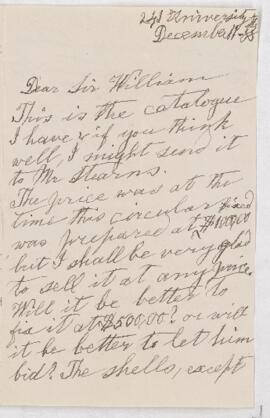 241 University St
December 11-88
Dear Sir William
This is the catalogue
I have & if you think
well, I might send it
to Mr Stearns.
The price was at the
time this circular
was prepared fixed at $1000.00
but I shall be very glad
to sell it at any price.
Will it be better to
fix it at $500.00? or will
it be better to let him
bid? The shells, except